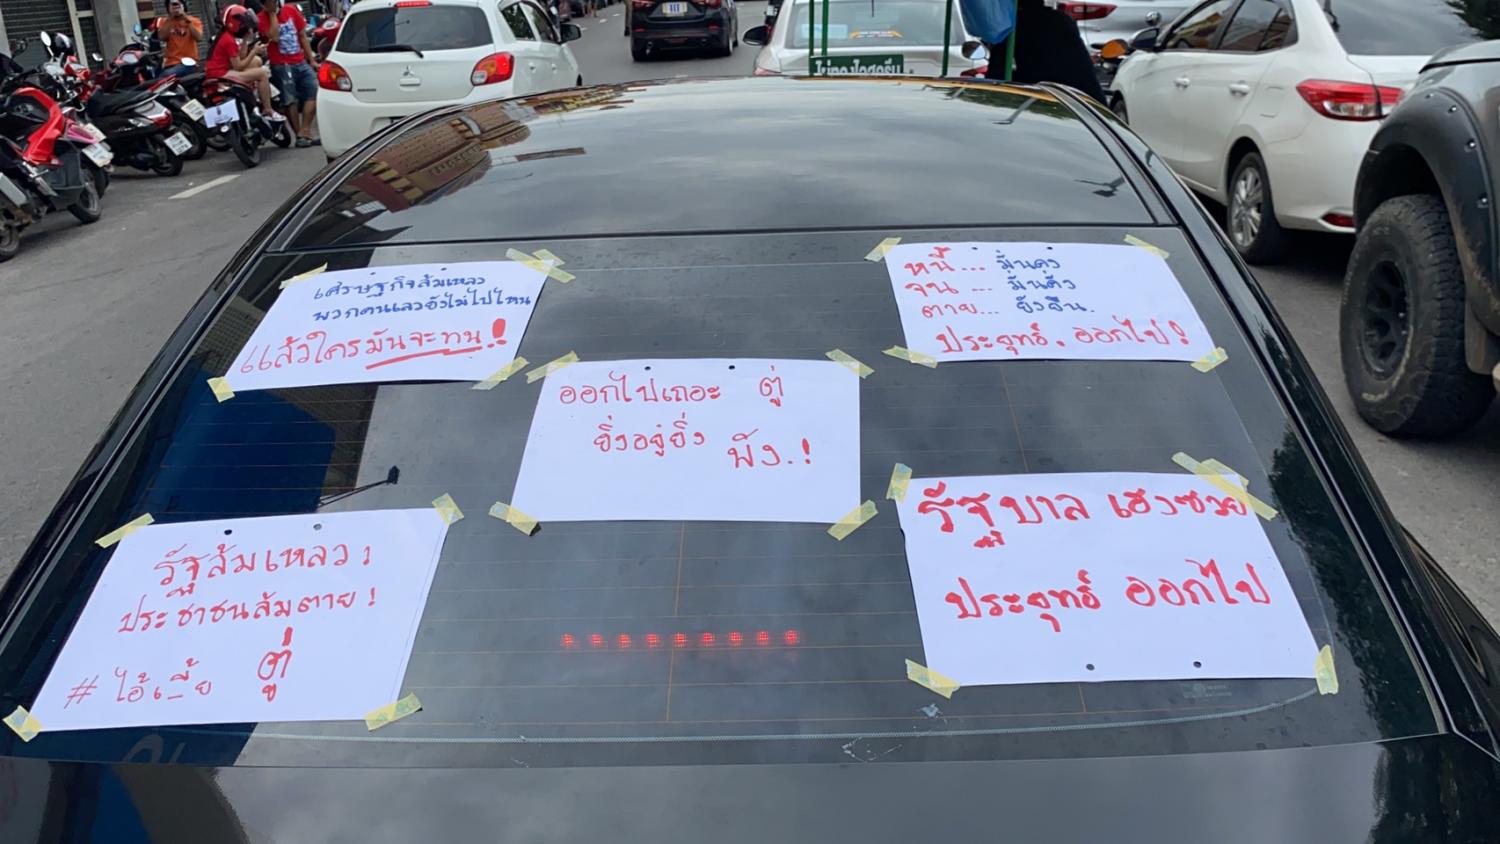 เศรษฐกิจล้มเหลว
พวกคนเลวยังไม่ไปไหน
แล้วใครมันจะทน!
หนี้... มั่นคง
จน... มั่งคั่ง
ตาย... ยั่งยืน.
ประยุทธ์. ออกไป!
ออกไปเถอะ ตู่
ยิ่งอยู่ยิ่ง พัง.!
รัฐล้มเหลว!
ประชาชนล้มตาย!
# ไอ้เ_ี้ย ตู่
รัฐบาล เฮงซวย
ประยุทธ์ ออกไป